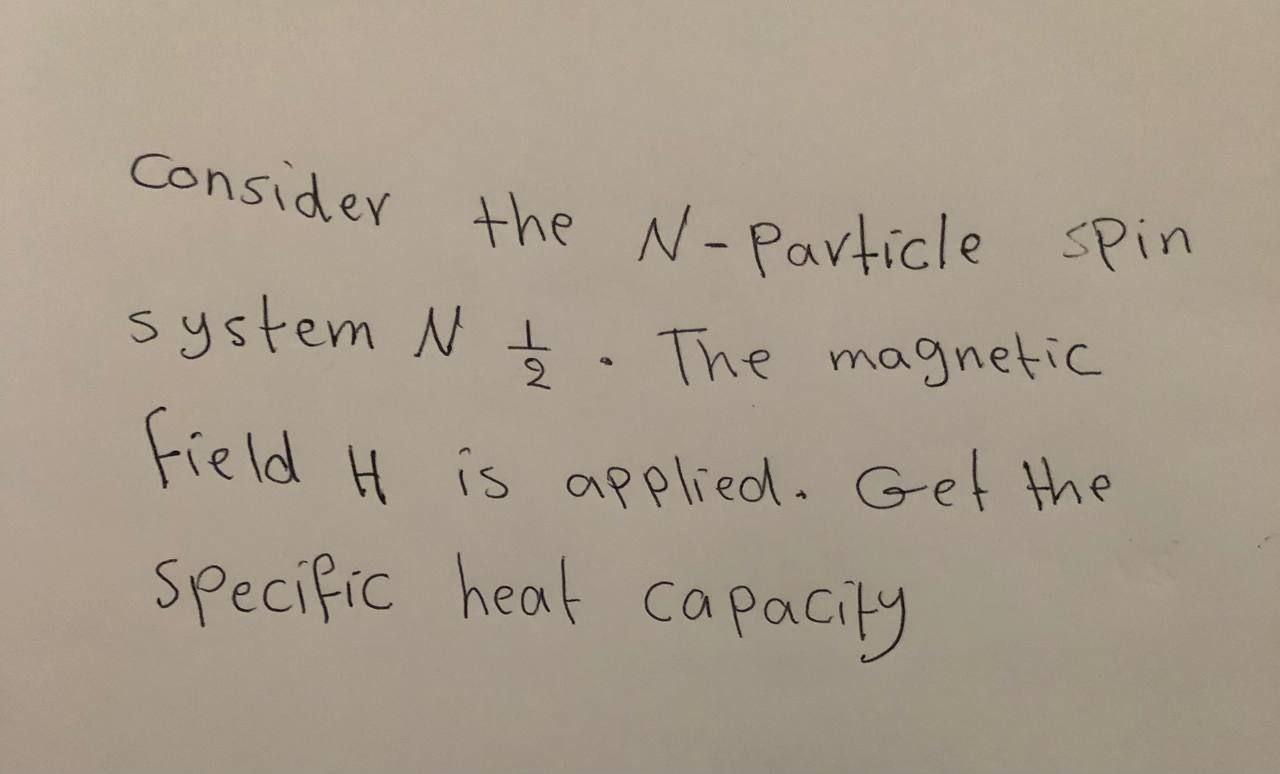 Consider the N-Particle spin
system N 1/2 . The magnetic
field H is applied. Get the
specific heat capacity